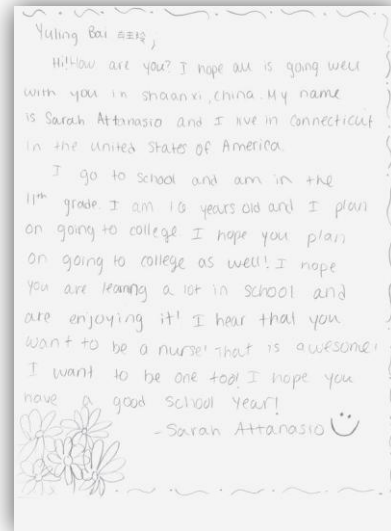 Yuling Bai
Hi! How are you? I hope all is going well
with you in shaanxi, china. My name
is Sarah Attanasio and I live in Connecticut
in the united states of America.
I go to school and am in the
11th grade. I am 16 years old and I plan
on going to college. I hope you plan
on going to college as well! I hope
you are learning a lot in school and
are enjoying it! I hear that you
want to be a nurse! That is awesome!
I want to be one too! I hope you
have a good school year!
-Sarah Attanasio